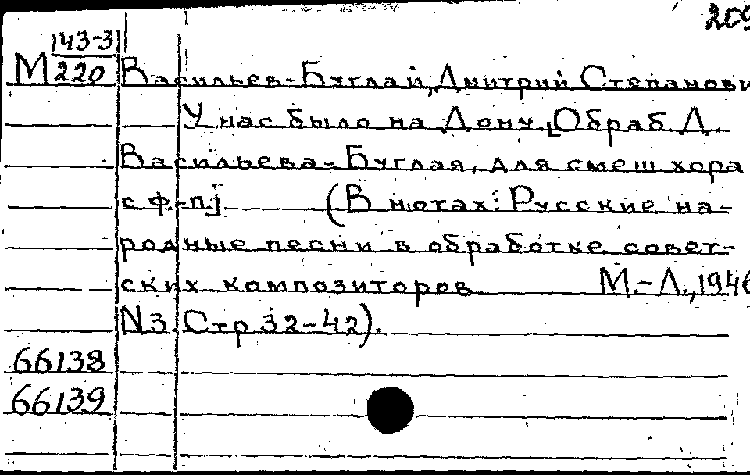 209
143-3
М 220 Васильев-Буглай, Дмитрий Степанови
У нас было на Дону. [Обраб. Д.
Васильева-Буглая, для смеш хора
с ф.-п.] (В нотах: Русские на-
родные песни в обработке совет-
ских композиторов М.-Л., 1946
N3. Стр 32-42).
66138
66139